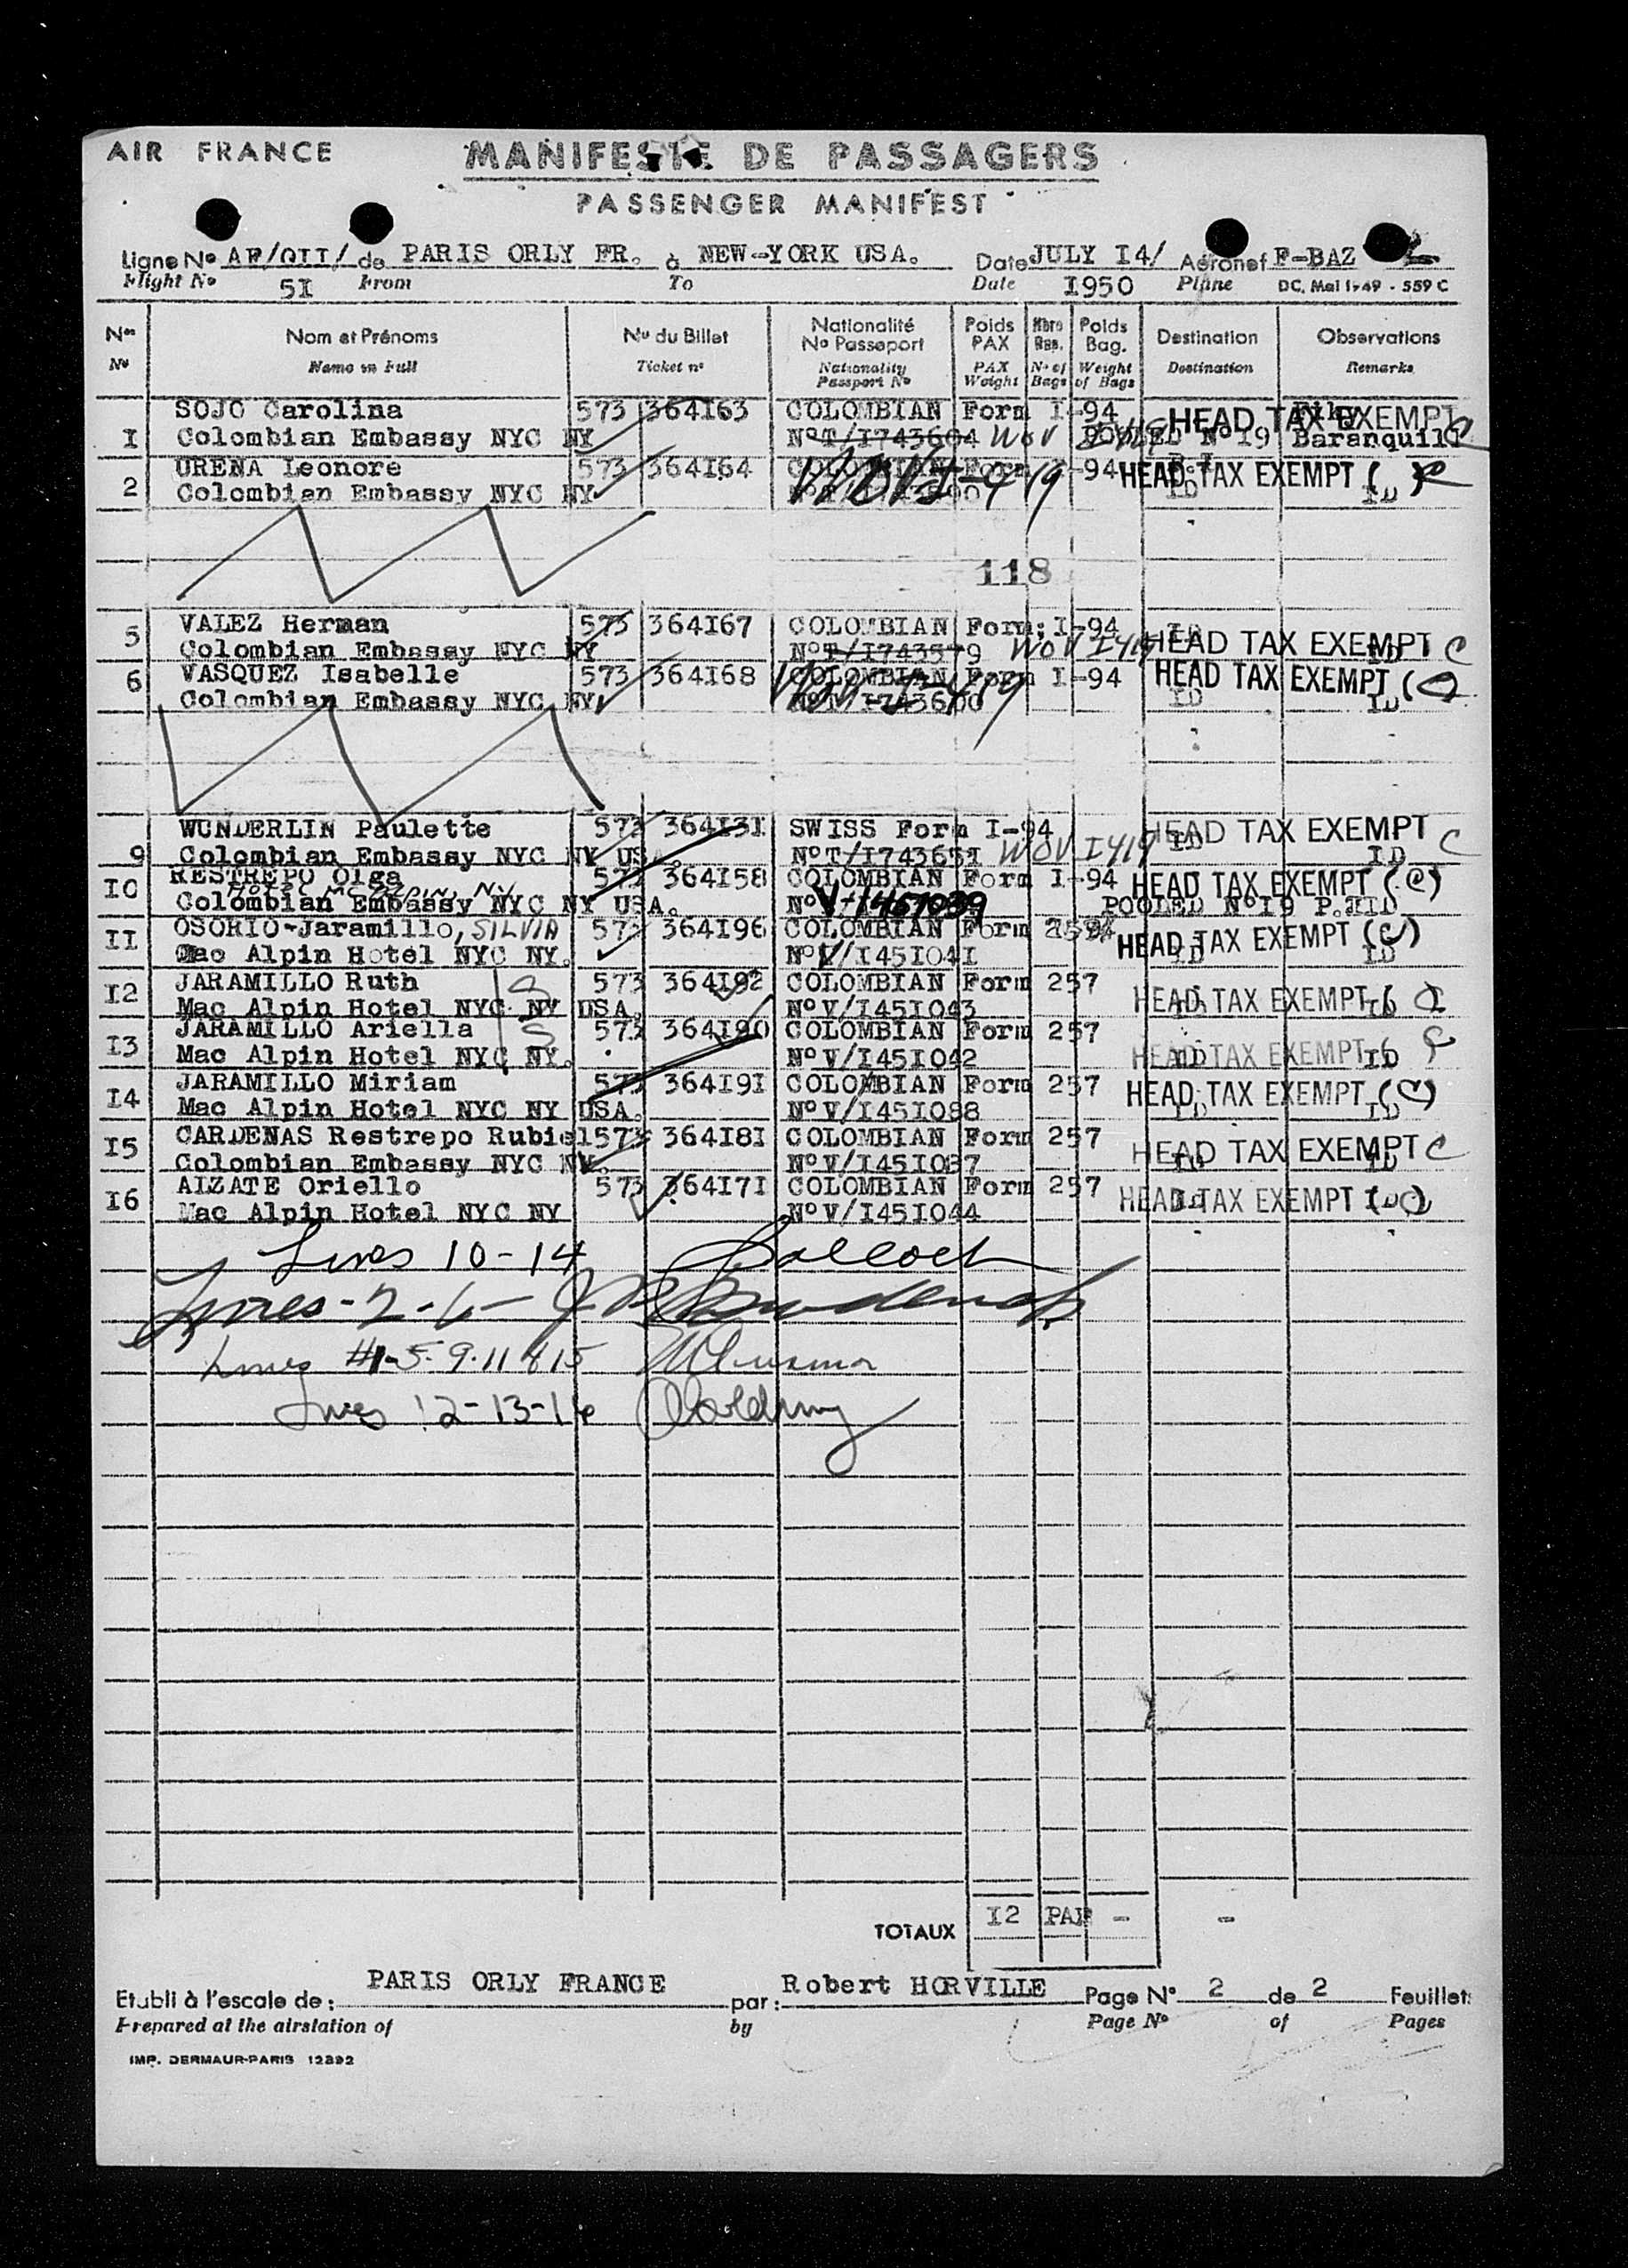 AIR FRANCE
MANIFESTE DE PASSAGERS
PASSENGER MANIFEST
Ligne No de PARIS ORLY FR. à NEW-YORK USA. Date JULY I4/ Aéronef F-BAZ
Flight No 5I From To Date I950 Plane DC. Mai 1949 - 559 C
Nos Nom et Prénoms No du Billet Nationalité Poids Nbre Poids Destination Observations
No Passeport PAX Bag. Bag.
No Name in Full Ticket no Nationality PAX No of Weight Destination Remarks
Passport No Weight Bags of Bags
SOJO Carolina 573 364I63 COLOMBIAN Form I-94 HEAD TAX EXEMPT
I Colombian Embassy NYC NY NoT/I743604 WOV POOLED No I9 Baranquill
URENA Leonore 573 364I64 COLOMBIAN Form I-94 HEAD TAX EXEMPT (
2 Colombian Embassy NYC NY
118
5 VALEZ Herman 573 364I67 COLOMBIAN Form: I-94 ID
Colombian Embassy NYC NY NoT/I743579 WOV I419 HEAD TAX EXEMPT C
6 VASQUEZ Isabelle 573 364I68 COLOMBIAN Form I-94 HEAD TAX EXEMPT (C)
Colombian Embassy NYC NY NoT/I743600 ID ID
WUNDERLIN Paulette 573 364I3I SWISS Form I-94 HEAD TAX EXEMPT C
9 Colombian Embassy NYC NY USA. NoT/I74365I WOV I419 ID ID
I0 RESTREPO Olga 573 364I58 COLOMBIAN Form I-94 HEAD TAX EXEMPT (C)
HOTEL MC ALPIN, NY
Colombian Embassy NYC NY USA. No V-1451039 POOLED No I9 P. ID
II OSORIO-Jaramillo, SILVIA 573 364I96 COLOMBIAN Form HEAD TAX EXEMPT (C)
Mac Alpin Hotel NYC NY. NoV/I45I04I ID ID
I2 JARAMILLO Ruth 573 364I92 COLOMBIAN Form 257 HEAD TAX EXEMPT
Mac Alpin Hotel NYC NY USA. NoV/I45I043
I3 JARAMILLO Ariella 573 364I90 COLOMBIAN Form 257
Mac Alpin Hotel NYC NY. NoV/I45I042 HEAD TAX EXEMPT ID
I4 JARAMILLO Miriam 573 364I9I COLOMBIAN Form 257 HEAD TAX EXEMPT (C)
Mac Alpin Hotel NYC NY USA. NoV/I45I088 ID ID
I5 CARDENAS Restrepo Rubiel 573 364I8I COLOMBIAN Form 257 HEAD TAX EXEMPT C
Colombian Embassy NYC NY. NoV/I45I037 ID ID
I6 AIZATE Oriello 573 364I7I COLOMBIAN Form 257 HEAD TAX EXEMPT
Mac Alpin Hotel NYC NY NoV/I45I044
Lines 10-14
Lines - 2-6-
Lines #1-5-9-11 & 15
Lines 12-13-16
TOTAUX I2 PAX - -
Etabli à l'escale de: PARIS ORLY FRANCE par: Robert HORVILLE Page No 2 de 2 Feuillets
Prepared at the airstation of by Page No of Pages
IMP. DERMAUR-PARIS 12392